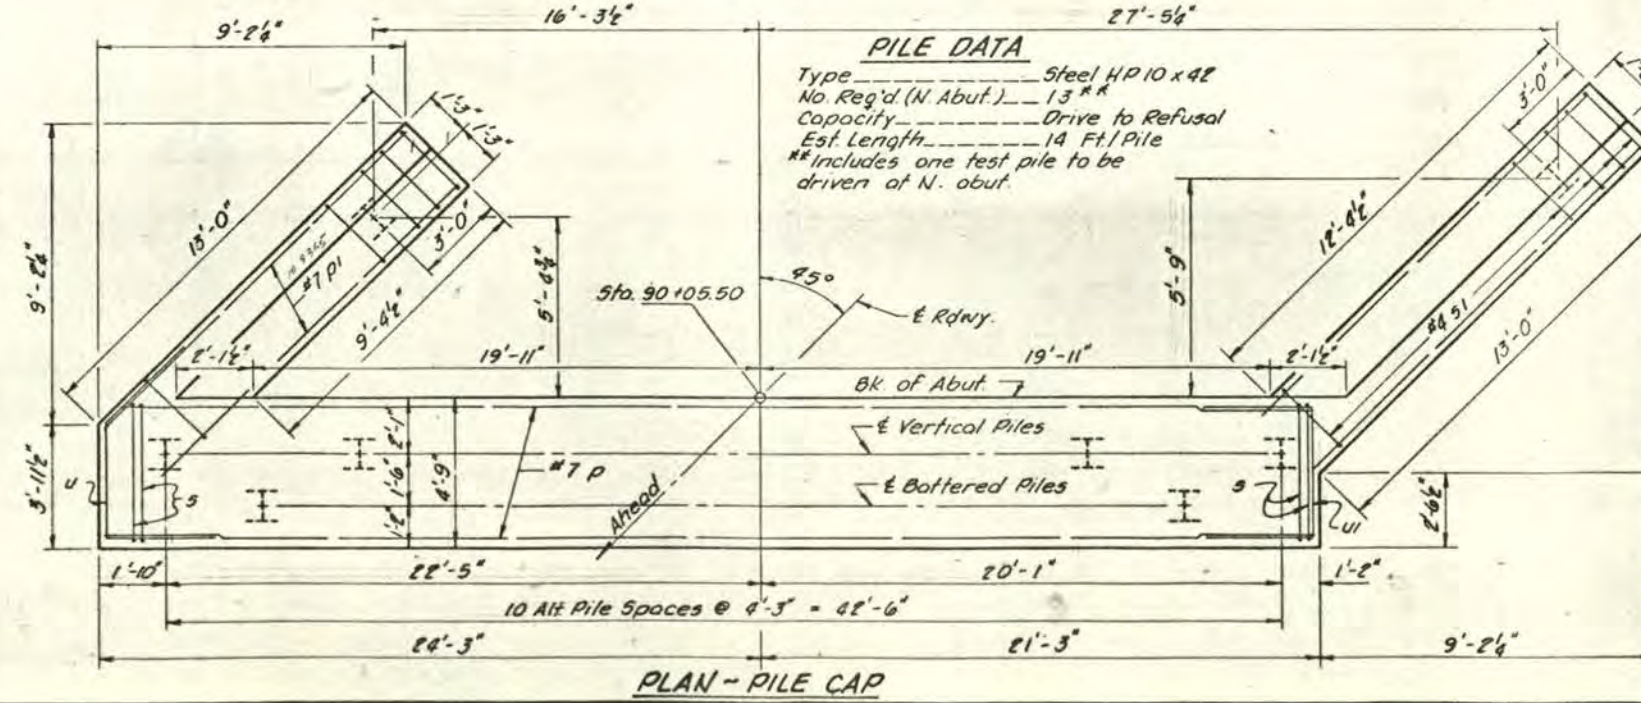 16'-3½"
27'-5¼"
9'-2¼"
PILE DATA
Type Steel HP 10 x 42
No. Req'd. (N. Abut.) 13 **
Capacity Drive to Refusal
Est. Length 14 Ft./Pile
** Includes one test pile to be
driven at N. abut.
1'-3"
1'-3"
3'-0"
13'-0"
#7 p1
3'-0"
9'-4½"
9'-2¼"
5'-4¾"
Sta. 90+05.50
45°
℄ Rdwy.
5'-9"
12'-4½"
#4 s1
13'-0"
2'-1½"
19'-11"
19'-11"
2'-1½"
Bk. of Abut.
℄ Vertical Piles
℄ Battered Piles
2'-1"
1'-6"
1'-2"
4'-9"
#7 p
Ahead
3'-1½"
u
s
s
u1
2'-6½"
1'-10"
22'-5"
20'-1"
1'-2"
10 Alt Pile Spaces @ 4'-3" = 42'-6"
24'-3"
21'-3"
9'-2¼"
PLAN ~ PILE CAP